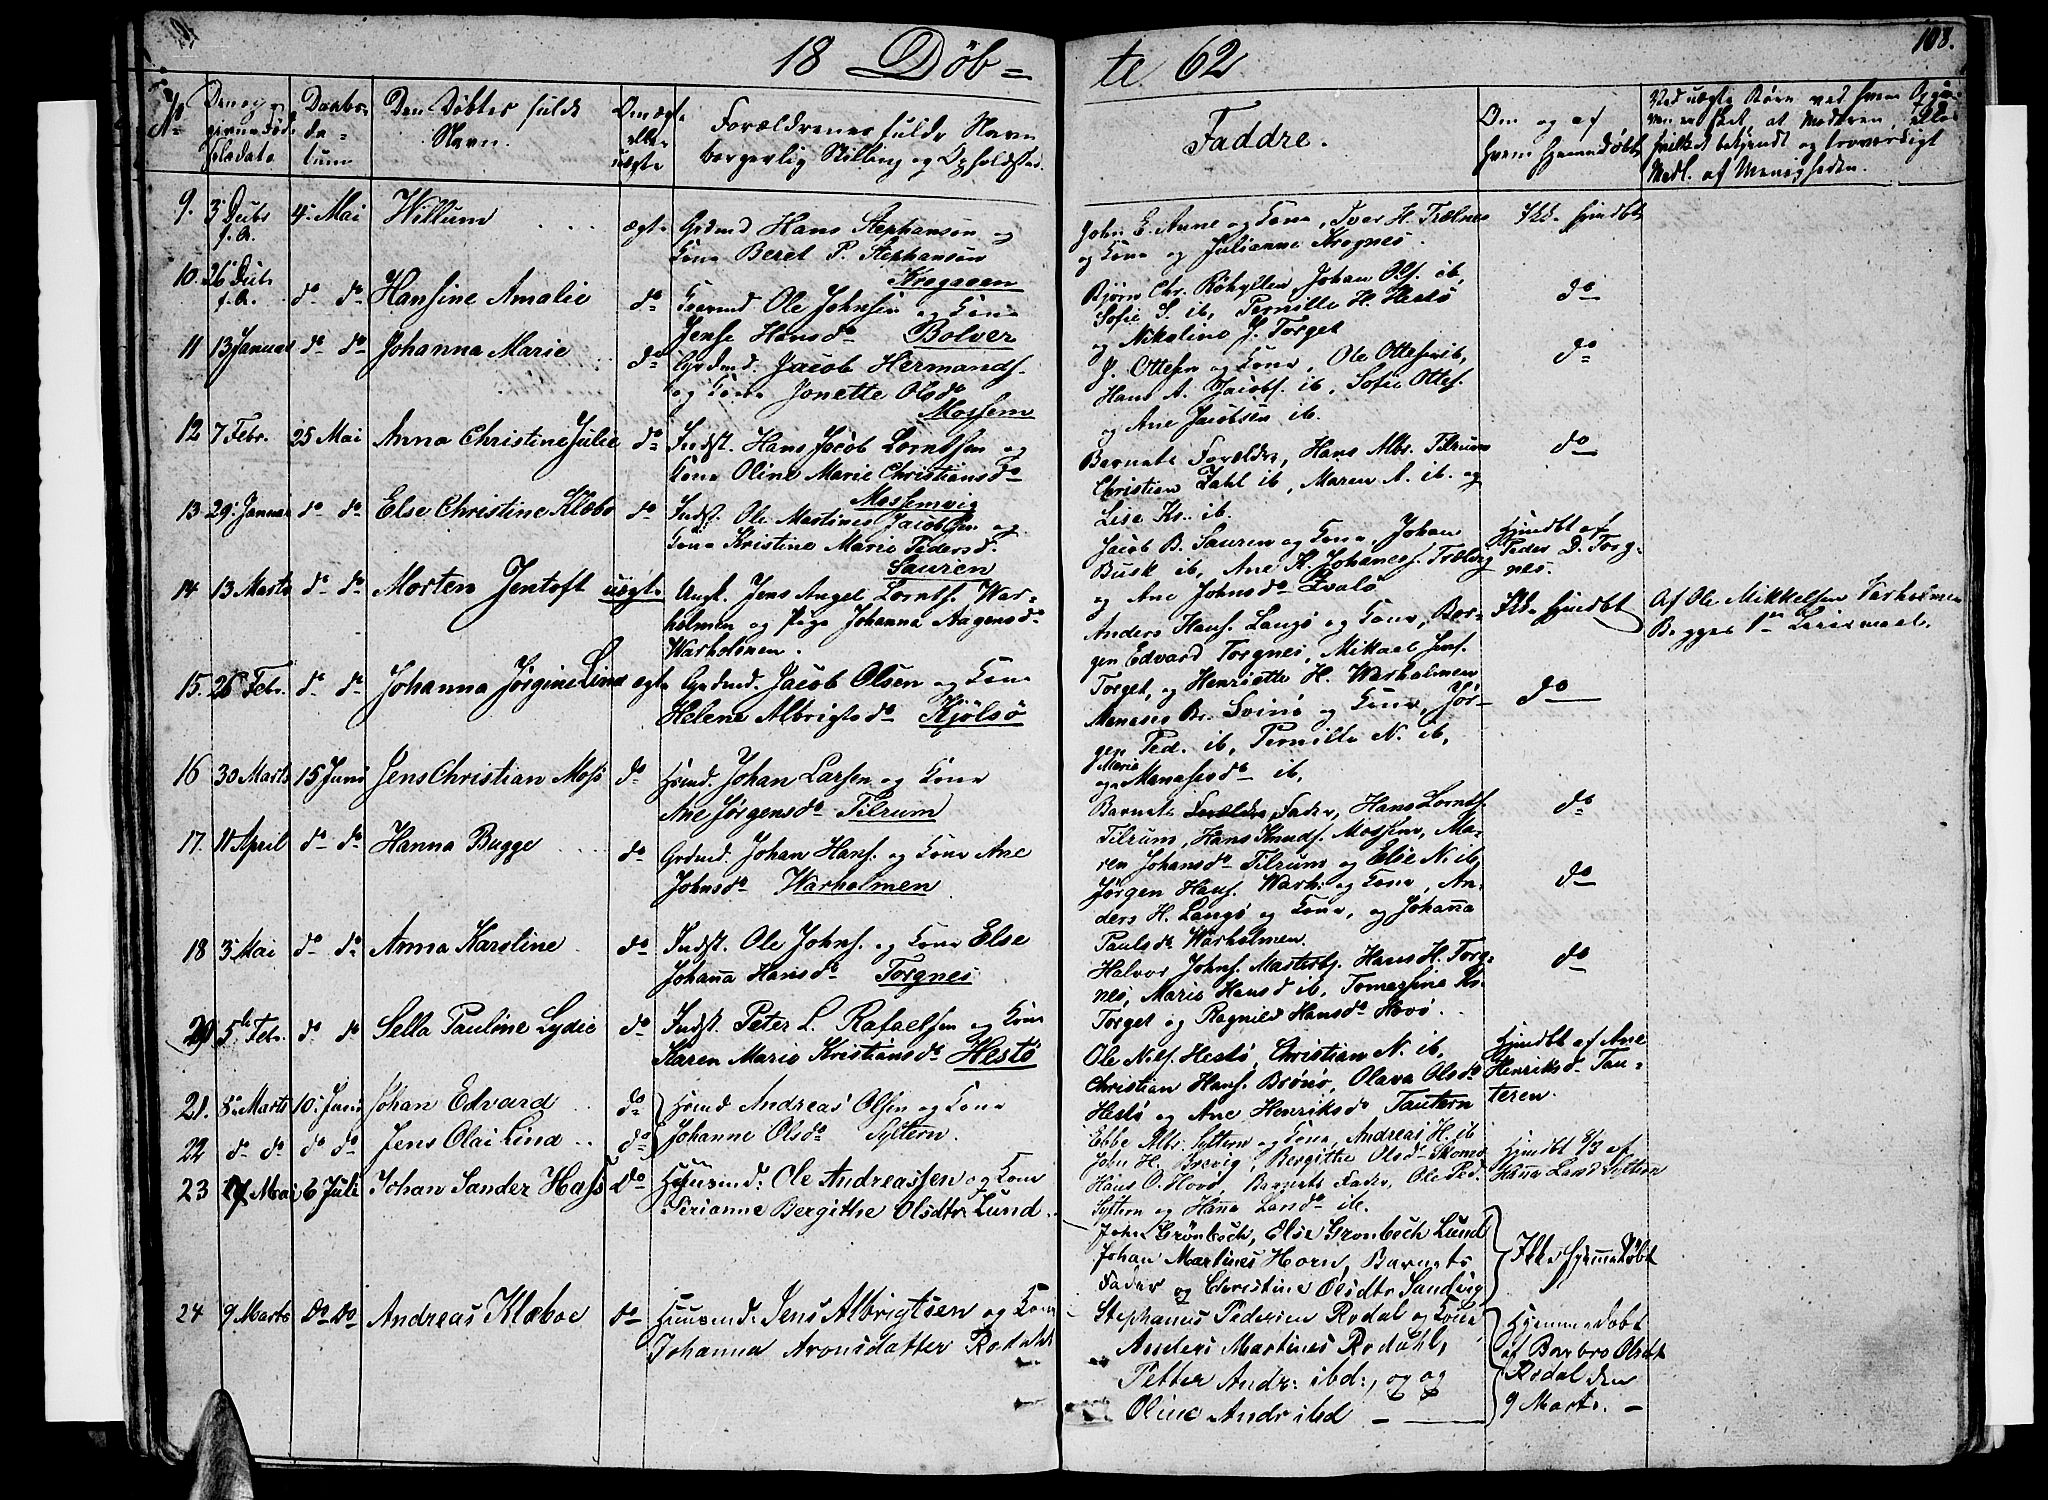 18 Døb=
te 62
103.
No
Den op=
givne Føds
selsdato
Daabs=
da=
tum
Den Døbtes fulde
Navn.
Om ægte
eller
uægte
Forældrenes fulde Navn
borgerlig Stilling og Opholdssted.
Faddre.
Om og af
hvem hjemmedøbt
Ved uægte Børn ved hvem Opgi=
ven er skeet, at Moderen
hvilket bekjendt og troværdigt
Medl. af Menigheden.
9. 3 Dcbr f. A. 4. Mai Willum ægte Grdmd Hans Stephansen og
Kone Beret P. Stephansen
Kregaven
John E. Aune og Kone, Iver H. Trælnes
og Kone og Julianne Krognes.
Ikke hjmdbt
10. 26 Dcbr f. A. do do Hansine Amalie do Ole Johnsen og Kone
Jense Hansdo Bolver
Bjørn Chr. Røhylten, Johan Ols. ib,
Sofie S. ib, Pernille H. Hestø
og Nikoline J. Torget
do
11 13 Januar do do Johanna Marie do Grdmd. Jacob Hermands.
og Kone Jonette Olsdo
Mossem
J. Ottesen og Kone, Ole Ottesen ib,
Hans A. Jacobs. ib, Sofie Ottes.
og Ane Jacobsen ib.
do
12 7 Febr. 25 Mai Anna Christine Julie do Indst. Hans Jacob Lorntsen og
Kone Oline Marie Christiansdo
Mossemvig
Barnets Forældre, Hans Albr. Tilrum
Christian Zahl ib, Maren A. ib. og
Lise Kr. ib.
do
13 29. Januar do do Else Christine Klæbo do Indst. Ole Martines Jacobsen og
Kone Kristine Marie Pedersd.
Sauren
Jacob B. Sauren og Kone, Johan
Busk ib, Ane H. Johanes. Trælvig
og Ane Johnsdo Kvalø
Hjmdbt af
Peder D. Torg=
nes.
14 13 Marts do do Morten Jentoft uægte Ungk. Jens Angel Lornts. War=
holmen og Pige Johanna Aagensdo
Warholmen.
Anders Hans. Langø og Kone, Bør=
gen Edvard Torgnes, Mikael Jens.
Torget, og Henriette H. Warholmen
Ikke hjmdbt
Af Ole Mikkelsen Varholmen
Begges 1ste Leiermaal.
15. 26 Febr. do do Johanna Jørgine Lina ægte Grdmd. Jacob Olsen og Kone
Helene Albrigtsdo Kjølsø
Manases Br. Svinø og Kone, Jør=
gen Ped. ib, Pernille N. ib,
og Marie Manasesdo ib,
do
16 30 Marts 15 Juni Jens Christian Moss do Hsmd. Johan Larsen og Kone
Ane Jørgensdo Tilrum
Barnets Forældre, Fader, Hans Lornts.
Tilrum, Hans Knuds. Mossem, Ma=
ren Johansdo Tilrum og Else N. ib,
do
17. 11 April do do Hanna Bugge do Grdmd. Johan Hans. og Kone Ane
Johnsdo Warholmen
Jørgen Hans. Warh: og Kone, An=
ders H. Langø og Kone, og Johanna
Paulsdo Warholmen.
do
18 3 Mai do do Anna Karoline do Indst. Ole Johns. og Kone Else
Johanna Hansdo Torgnes
Halvor Johns. Masterbj. Hans H. Torg=
nes, Marie Hansd ib, Tomassine Kr.
Torget og Ragnild Hansdo Hovø.
do
20 5te Febr. do do Sella Pauline Lydie do Indst. Peter L. Rafaelsen og Kone
Karen Marie Kristiansdo Hestø
Ole Nils. Hestø, Christian N. ib,
Christian Hans. Brønø, Olava Olsdo
Hestø og Ane Henriksdo Tautern
Hjmdbt af Ane
Henriksdo Tau=
teren.
21. 8. Marts 10. Juni Johan Edvard do Hsmd Andreas Olsen og Kone
22 do do do do Jens Olai Lind do Johanne Olsdo Syltern.
Ebbe Albr. Syltern og Kone, Andreas H. ib
John H. Brevig, Bergithe Olsdo Skomo
Hans O. Hovø, Barnets Fader, Ole Ped.
Syltern og Hana Landdo ib.
Hjmdbt 8/3 af
Hana Lansd Syltern
23 17 Mai 6 Juli Johan Sander Hass do Huusmd: Ole Andreassen og Kone
Birianne Bergithe Olsdtr Lund
John Grønbech, Else Gronbech Lund
Johan Martines Horn, Barnets
Fader og Christine Olsdtr Sandvig
Ikke hjemmedøbt
24 9 Marts do do Andreas Klæboe do Huusmd: Jens Albrigtsen og Kone
Johanna Aronsdatter Rodahl
Stephanus Pedersen Rodal og Kone
Anders Martines Rodahl,
Petter Andr: ibd:, og og
Oline Andr ibd –
Hjemmedøbt
af Barbro Olsdt
Rodal den
9 Marts. –